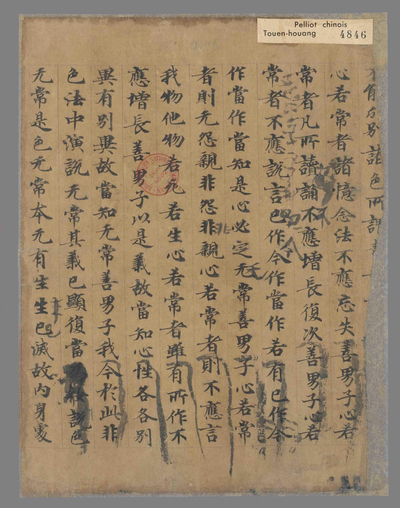 Pelliot chinois
Touen-houang 4846
別諸色所
心若常者諸憶念法不應忘失善男子心若
常者凡所讀誦不應增長復次善男子心若
常者不應說言已作今作當作若有已作今
作當作當知是心必定无常善男子心若常
者則无怨親非怨非親心若常者則不應言
我物他物若死若生心若常者雖有所作不
應增長善男子以是義故當知心性各各別
異有別異故當知无常善男子我今於此非
色法中演說无常其義已顯復當說色
无常是色无常本无有生生已滅故內身處